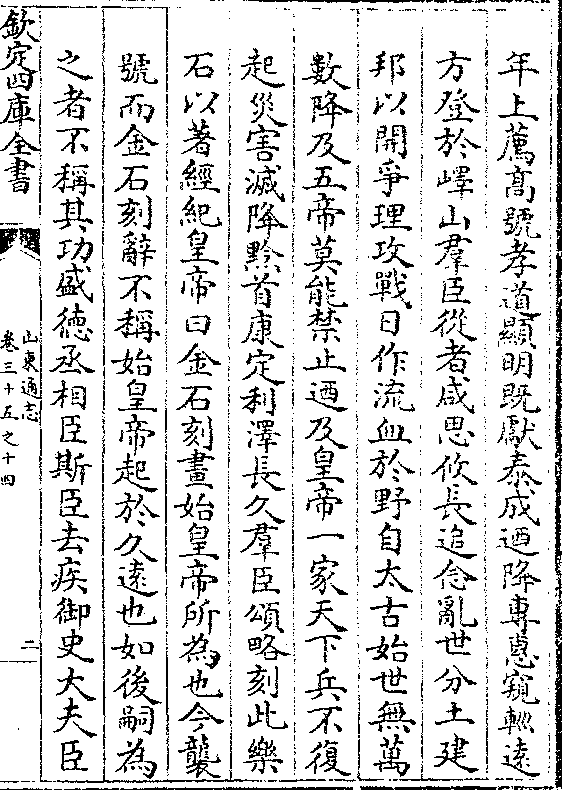 年上薦髙號孝道顯明既獻泰成迺降專惠窺輶遠
方登於嶧山羣臣從者咸思攸長追念亂世分土建
邦以開爭理攻戰日作流血於野自太古始世無萬
數陣及五帝莫能禁止迺及皇帝一家天下兵不復
起災害滅降黔首康定利澤長久羣臣頌略刻此樂
石以著經紀皇帝曰金石刻畫始皇帝所為也今襲
號而金石刻辭不稱始皇帝起於久遠也如後嗣為
之者不稱其功盛德丞相臣斯臣去疾御史大夫臣
欽定四庫全書
山東通志
卷三十五之十四
二